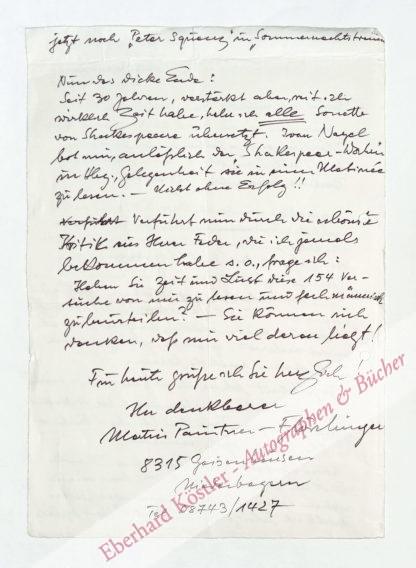 jetzt noch "Peter Squenz" im "Sommernachtstraum
Nun das dicke Ende:
Seit 30 Jahren, verstärkt aber, seit ich
wirklich Zeit habe, habe ich alle Sonette
von Shakespeare übersetzt. Ivan Nagel
bot mir, anläßlich der "Shakespeare-Woche"
in Hbg., Gelegenheit sie in einer Matinée
zu lesen. – Nicht ohne Erfolg!!
Verführt nun durch die schönste
Kritik aus Ihrer Feder, die ich jemals
bekommen habe s. o., frage ich:
Haben Sie Zeit und Lust diese 154 Ver-
suche von mir zu lesen und fachmännisch
zu beurteilen? – Sie können sich
denken, daß mir viel daran liegt!
Für heute grüße ich Sie herzlich!
Ihr dankbarer
Mathis Paintner –
8315 Geisenhausen
Niederbayern
Tel. 08743/1427
Eberhard Köstler - Autographen & Bücher